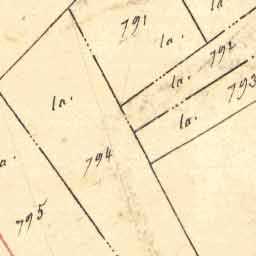 la.
791
la.
la.
792
la.
793
la.
la.
794
a.
795